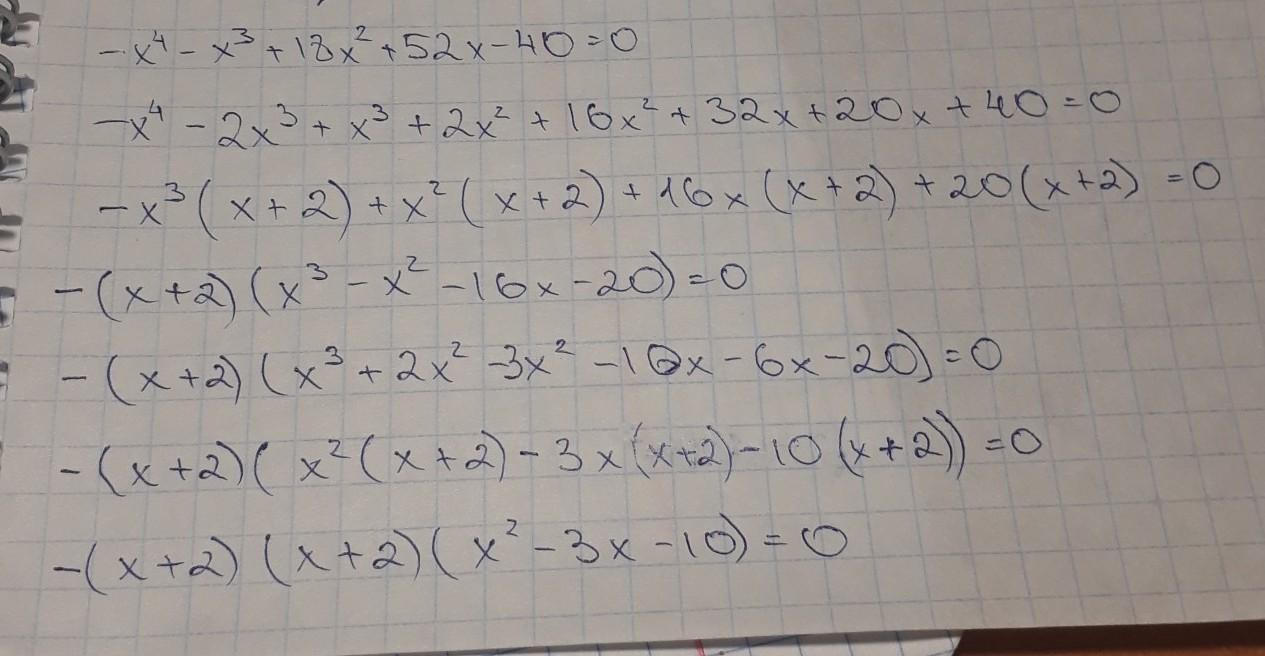 -x⁴ - x³ + 18x² + 52x - 40 = 0
-x⁴ - 2x³ + x³ + 2x² + 16x² + 32x + 20x + 40 = 0
-x³(x+2) + x²(x+2) + 16x(x+2) + 20(x+2) = 0
-(x+2)(x³ - x² - 16x - 20) = 0
-(x+2)(x³ + 2x² - 3x² - 10x - 6x - 20) = 0
-(x+2)(x²(x+2) - 3x(x+2) - 10(x+2)) = 0
-(x+2)(x+2)(x² - 3x - 10) = 0